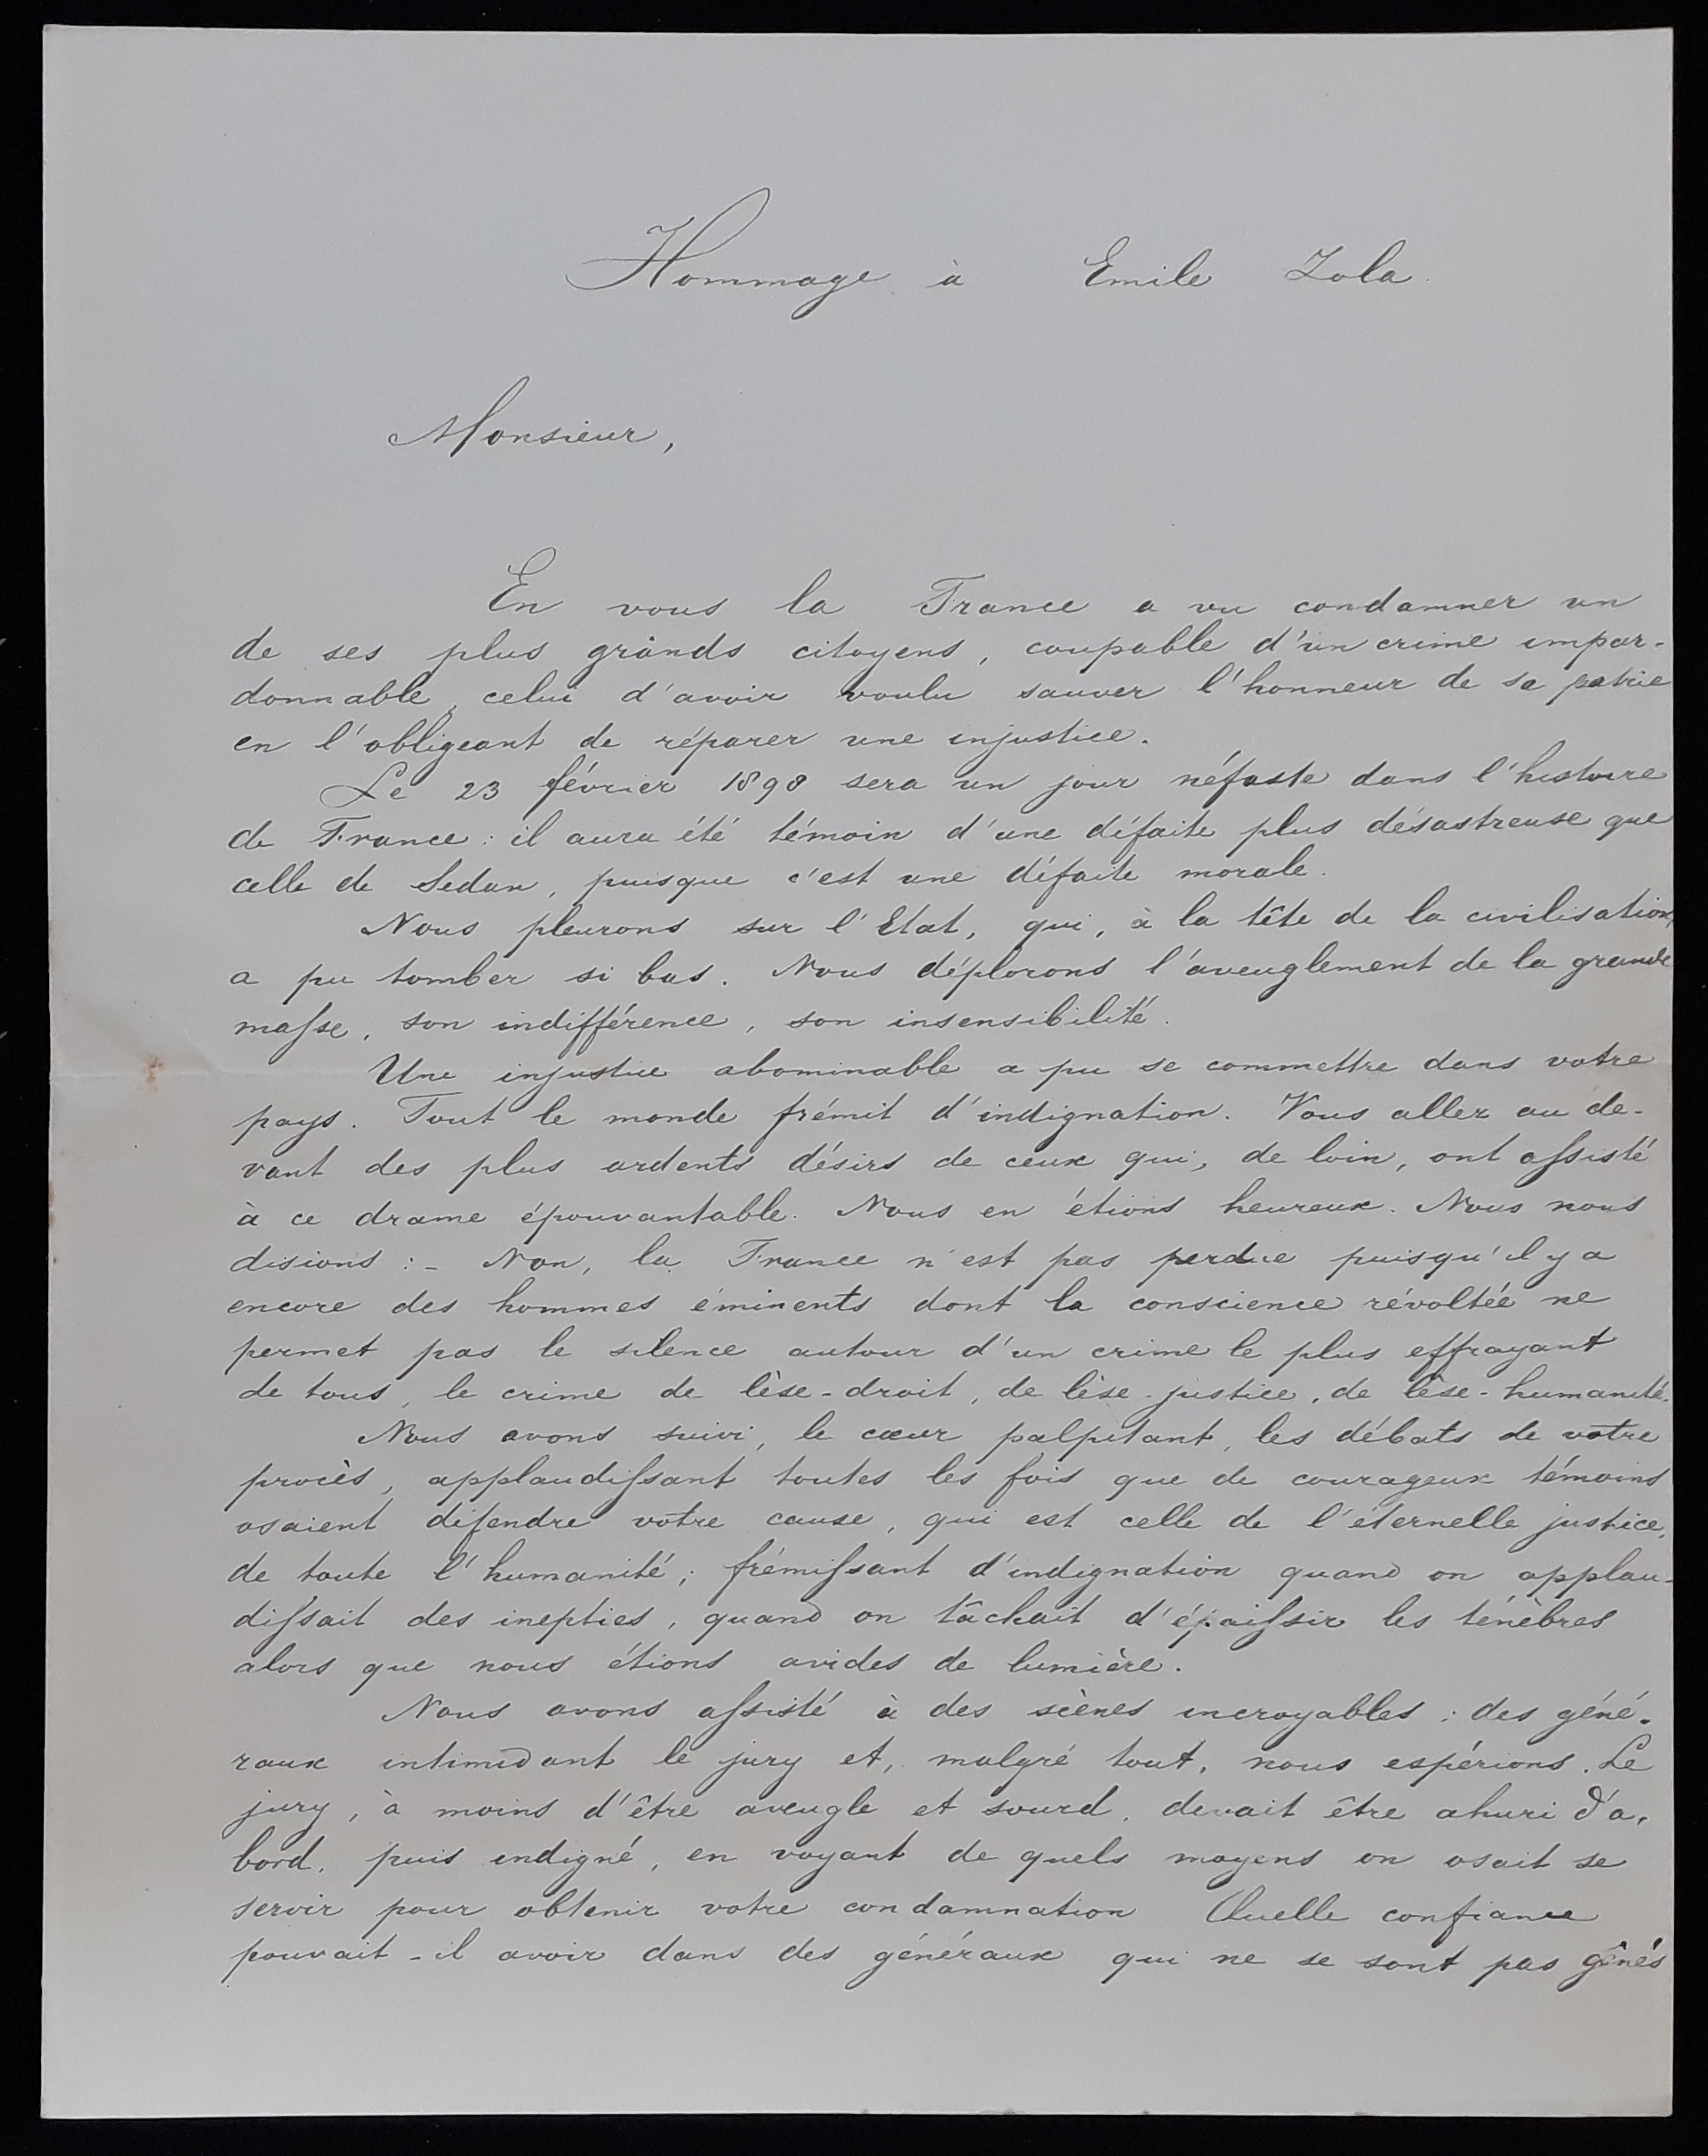 Hommage à Emile Zola.
Monsieur,
En vous la France a vu condamner un
de ses plus grands citoyens, coupable d'un crime impar-
donnable, celui d'avoir voulu sauver l'honneur de sa patrie
en l'obligeant de réparer une injustice.
Le 23 février 1898 sera un jour néfaste dans l'histoire
de France : il aura été témoin d'une défaite plus désastreuse que
celle de Sedan, puisque c'est une défaite morale.
Nous pleurons sur l'Etat, qui, à la tête de la civilisation,
a pu tomber si bas. Nous déplorons l'aveuglement de la grande
masse, son indifférence, son insensibilité.
Une injustice abominable a pu se commettre dans votre
pays. Tout le monde frémit d'indignation. Vous allez au de-
vant des plus ardents désirs de ceux qui, de loin, ont assisté
à ce drame épouvantable. Nous en étions heureux. Nous nous
disions : - Non, la France n'est pas perdue puisqu'il y a
encore des hommes éminents dont la conscience révoltée ne
permet pas le silence autour d'un crime le plus effrayant
de tous, le crime de lèse-droit, de lèse-justice, de lèse-humanité.
Nous avons suivi, le cœur palpitant, les débats de votre
procès, applaudissant toutes les fois que de courageux témoins
osaient défendre votre cause, qui est celle de l'éternelle justice,
de toute l'humanité ; frémissant d'indignation quand on applau-
dissait des inepties, quand on tâchait d'épaissir les ténèbres
alors que nous étions avides de lumière.
Nous avons assisté à des scènes incroyables : des géné-
raux intimidant le jury et, malgré tout, nous espérions. Le
jury, à moins d'être aveugle et sourd, devait être ahuri d'a-
bord, puis indigné, en voyant de quels moyens on osait se
servir pour obtenir votre condamnation Quelle confiance
pouvait-il avoir dans des généraux qui ne se sont pas gênés